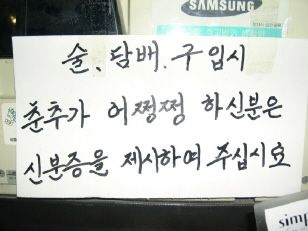 SAMSUNG
술, 담배. 구입시
춘추가 어쩡쩡 하신분은
신분증을 제시하여 주십시요
simp